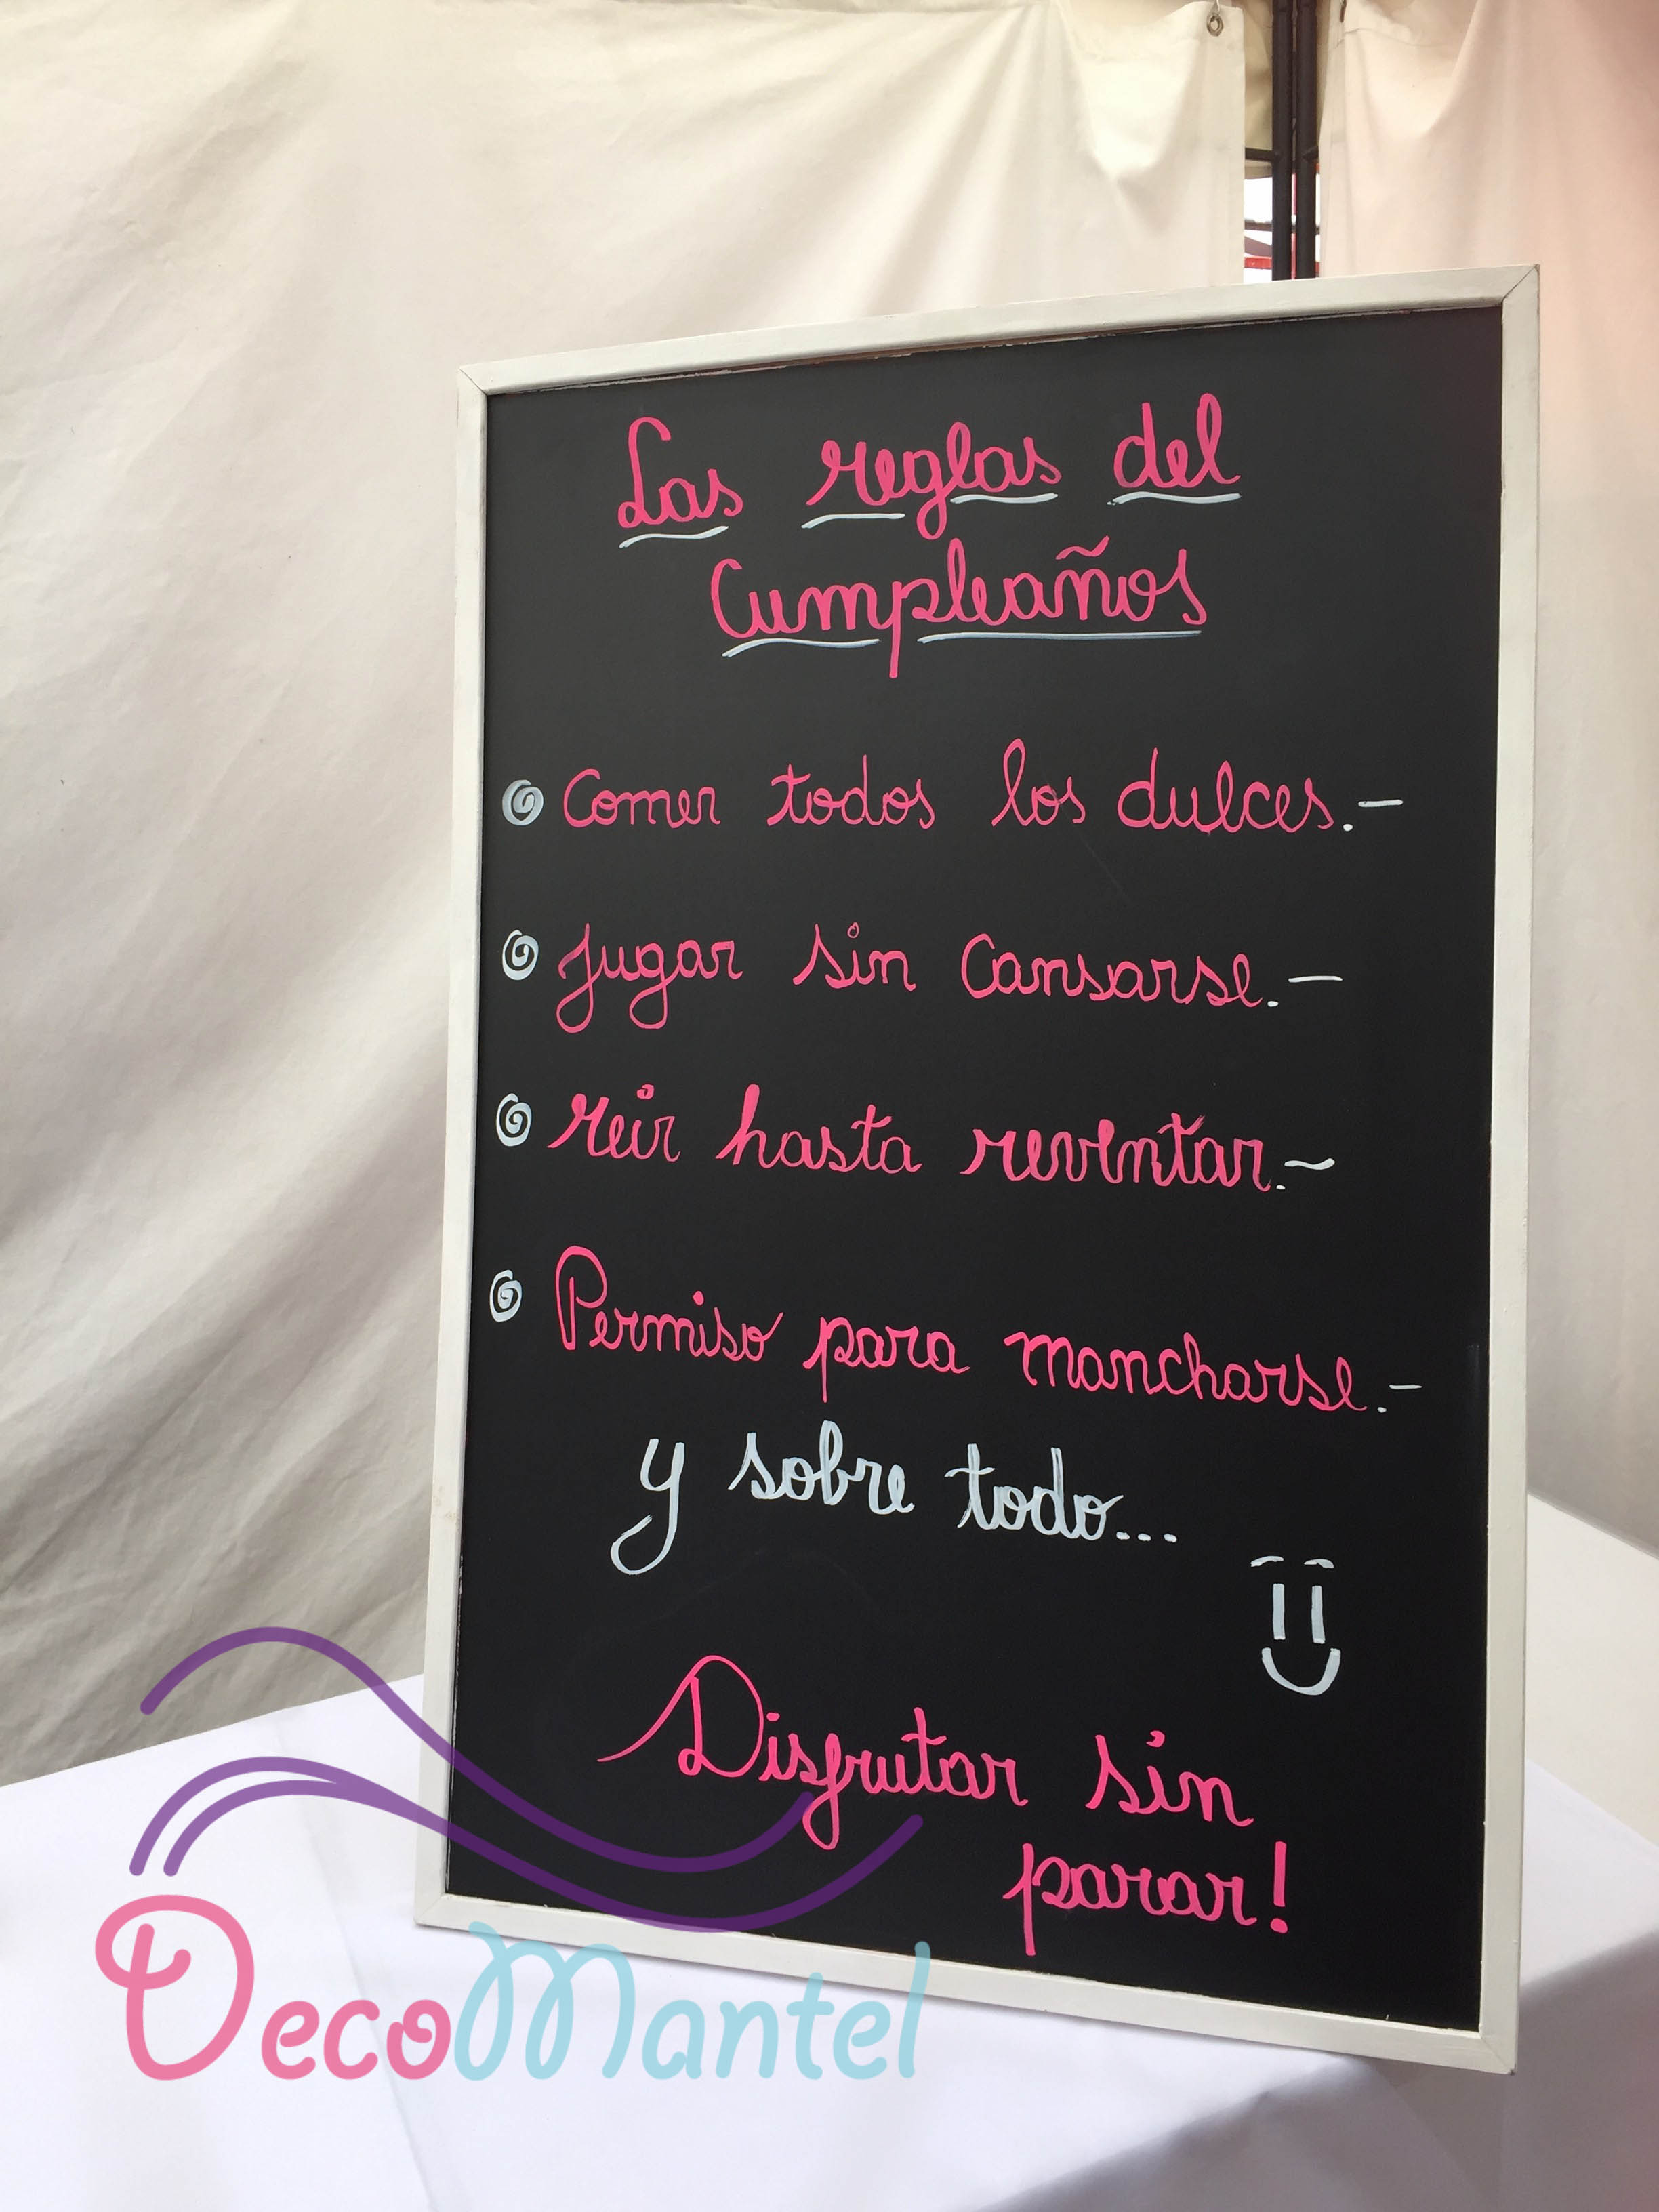 Las reglas del
Cumpleaños
Comer todos los dulces.-
Jugar sin Cansarse.-
reir hasta reventar.-
Permiso para mancharse.-
y sobre todo...
Disfrutar sin
parar!
DecoMantel